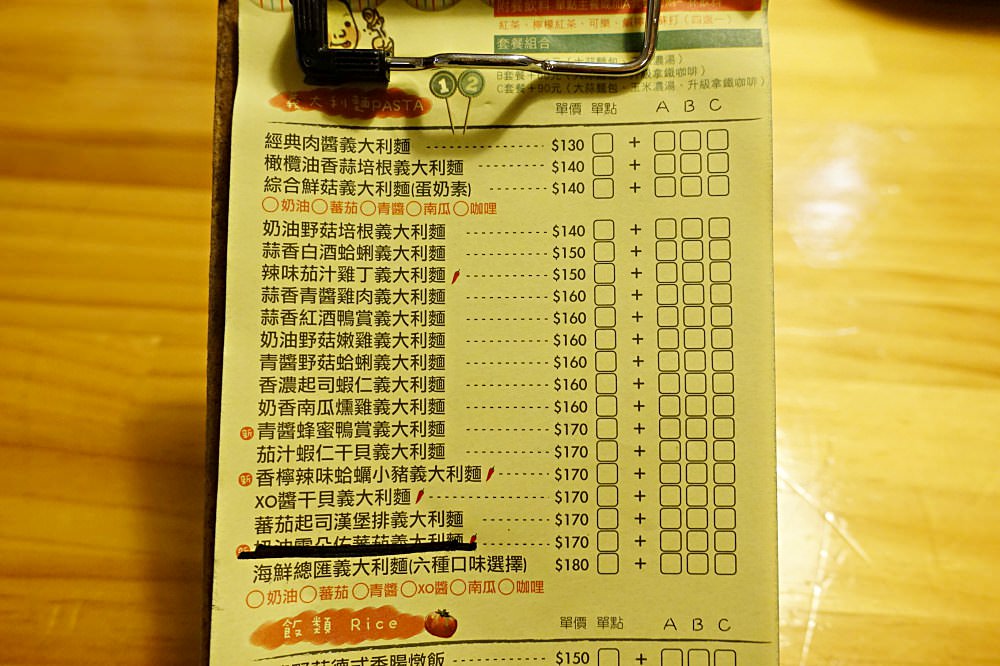 紅茶、檸檬紅茶、可樂、
套餐組合
濃湯）
B套餐+
拿鐵咖啡）
C套餐+90元（大蒜麵包、玉米濃湯、升級拿鐵咖啡）
① ②
義大利麵PASTA 單價 單點 A B C
經典肉醬義大利麵 $130 +
橄欖油香蒜培根義大利麵 $140 +
綜合鮮菇義大利麵(蛋奶素) $140 +
○奶油○蕃茄○青醬○南瓜○咖哩
奶油野菇培根義大利麵 $140 +
蒜香白酒蛤蜊義大利麵 $150 +
辣味茄汁雞丁義大利麵 $150 +
蒜香青醬雞肉義大利麵 $160 +
蒜香紅酒鴨賞義大利麵 $160 +
奶油野菇嫩雞義大利麵 $160 +
青醬野菇蛤蜊義大利麵 $160 +
香濃起司蝦仁義大利麵 $160 +
奶香南瓜燻雞義大利麵 $160 +
新 青醬蜂蜜鴨賞義大利麵 $170 +
茄汁蝦仁干貝義大利麵 $170 +
新 香檸辣味蛤蠣小豬義大利麵 $170 +
XO醬干貝義大利麵 $170 +
蕃茄起司漢堡排義大利麵 $170 +
義大利麵 $170 +
海鮮總匯義大利麵(六種口味選擇) $180 +
○奶油○蕃茄○青醬○XO醬○南瓜○咖哩
飯類 Rice 單價 單點 A B C
野菇德式香腸燉飯 $150 +